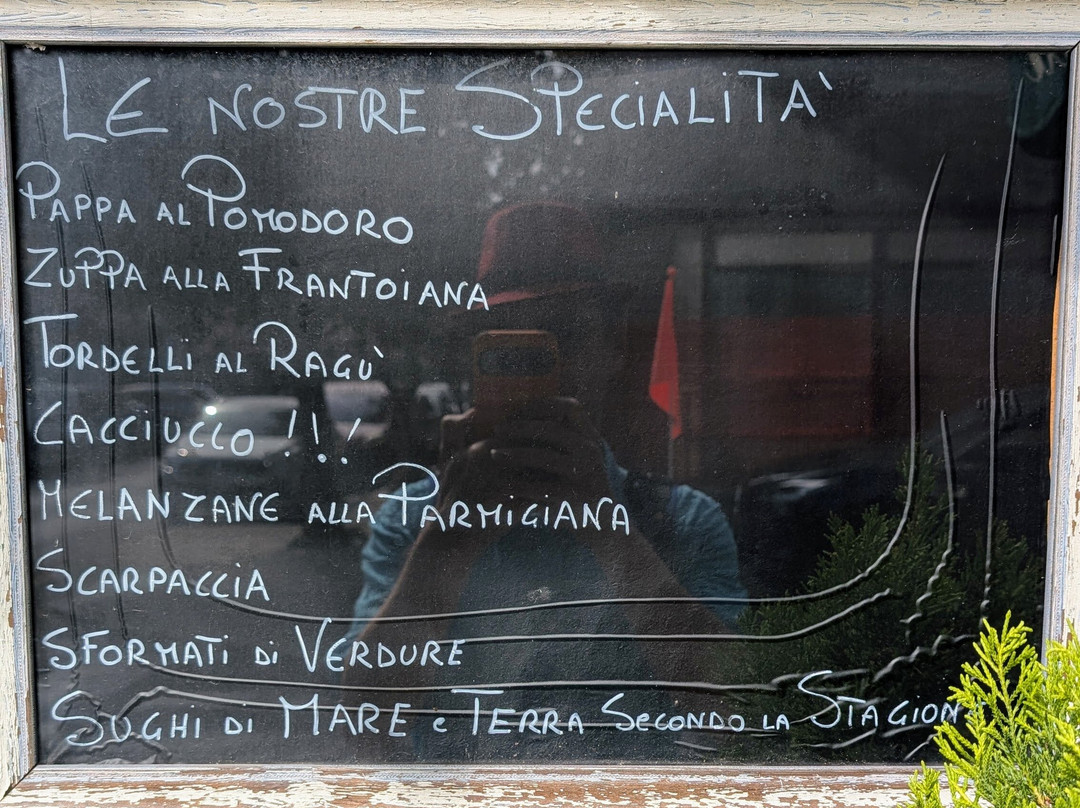 LE NOSTRE SPECIALITA'
PAPPA AL POMODORO
ZUPPA ALLA FRANTOIANA
TORDELLI AL RAGÙ
CACCIUCCO !!!
MELANZANE ALLA PARMIGIANA
SCARPACCIA
SFORMATI DI VERDURE
SUGHI DI MARE e TERRA SECONDO LA STAGION